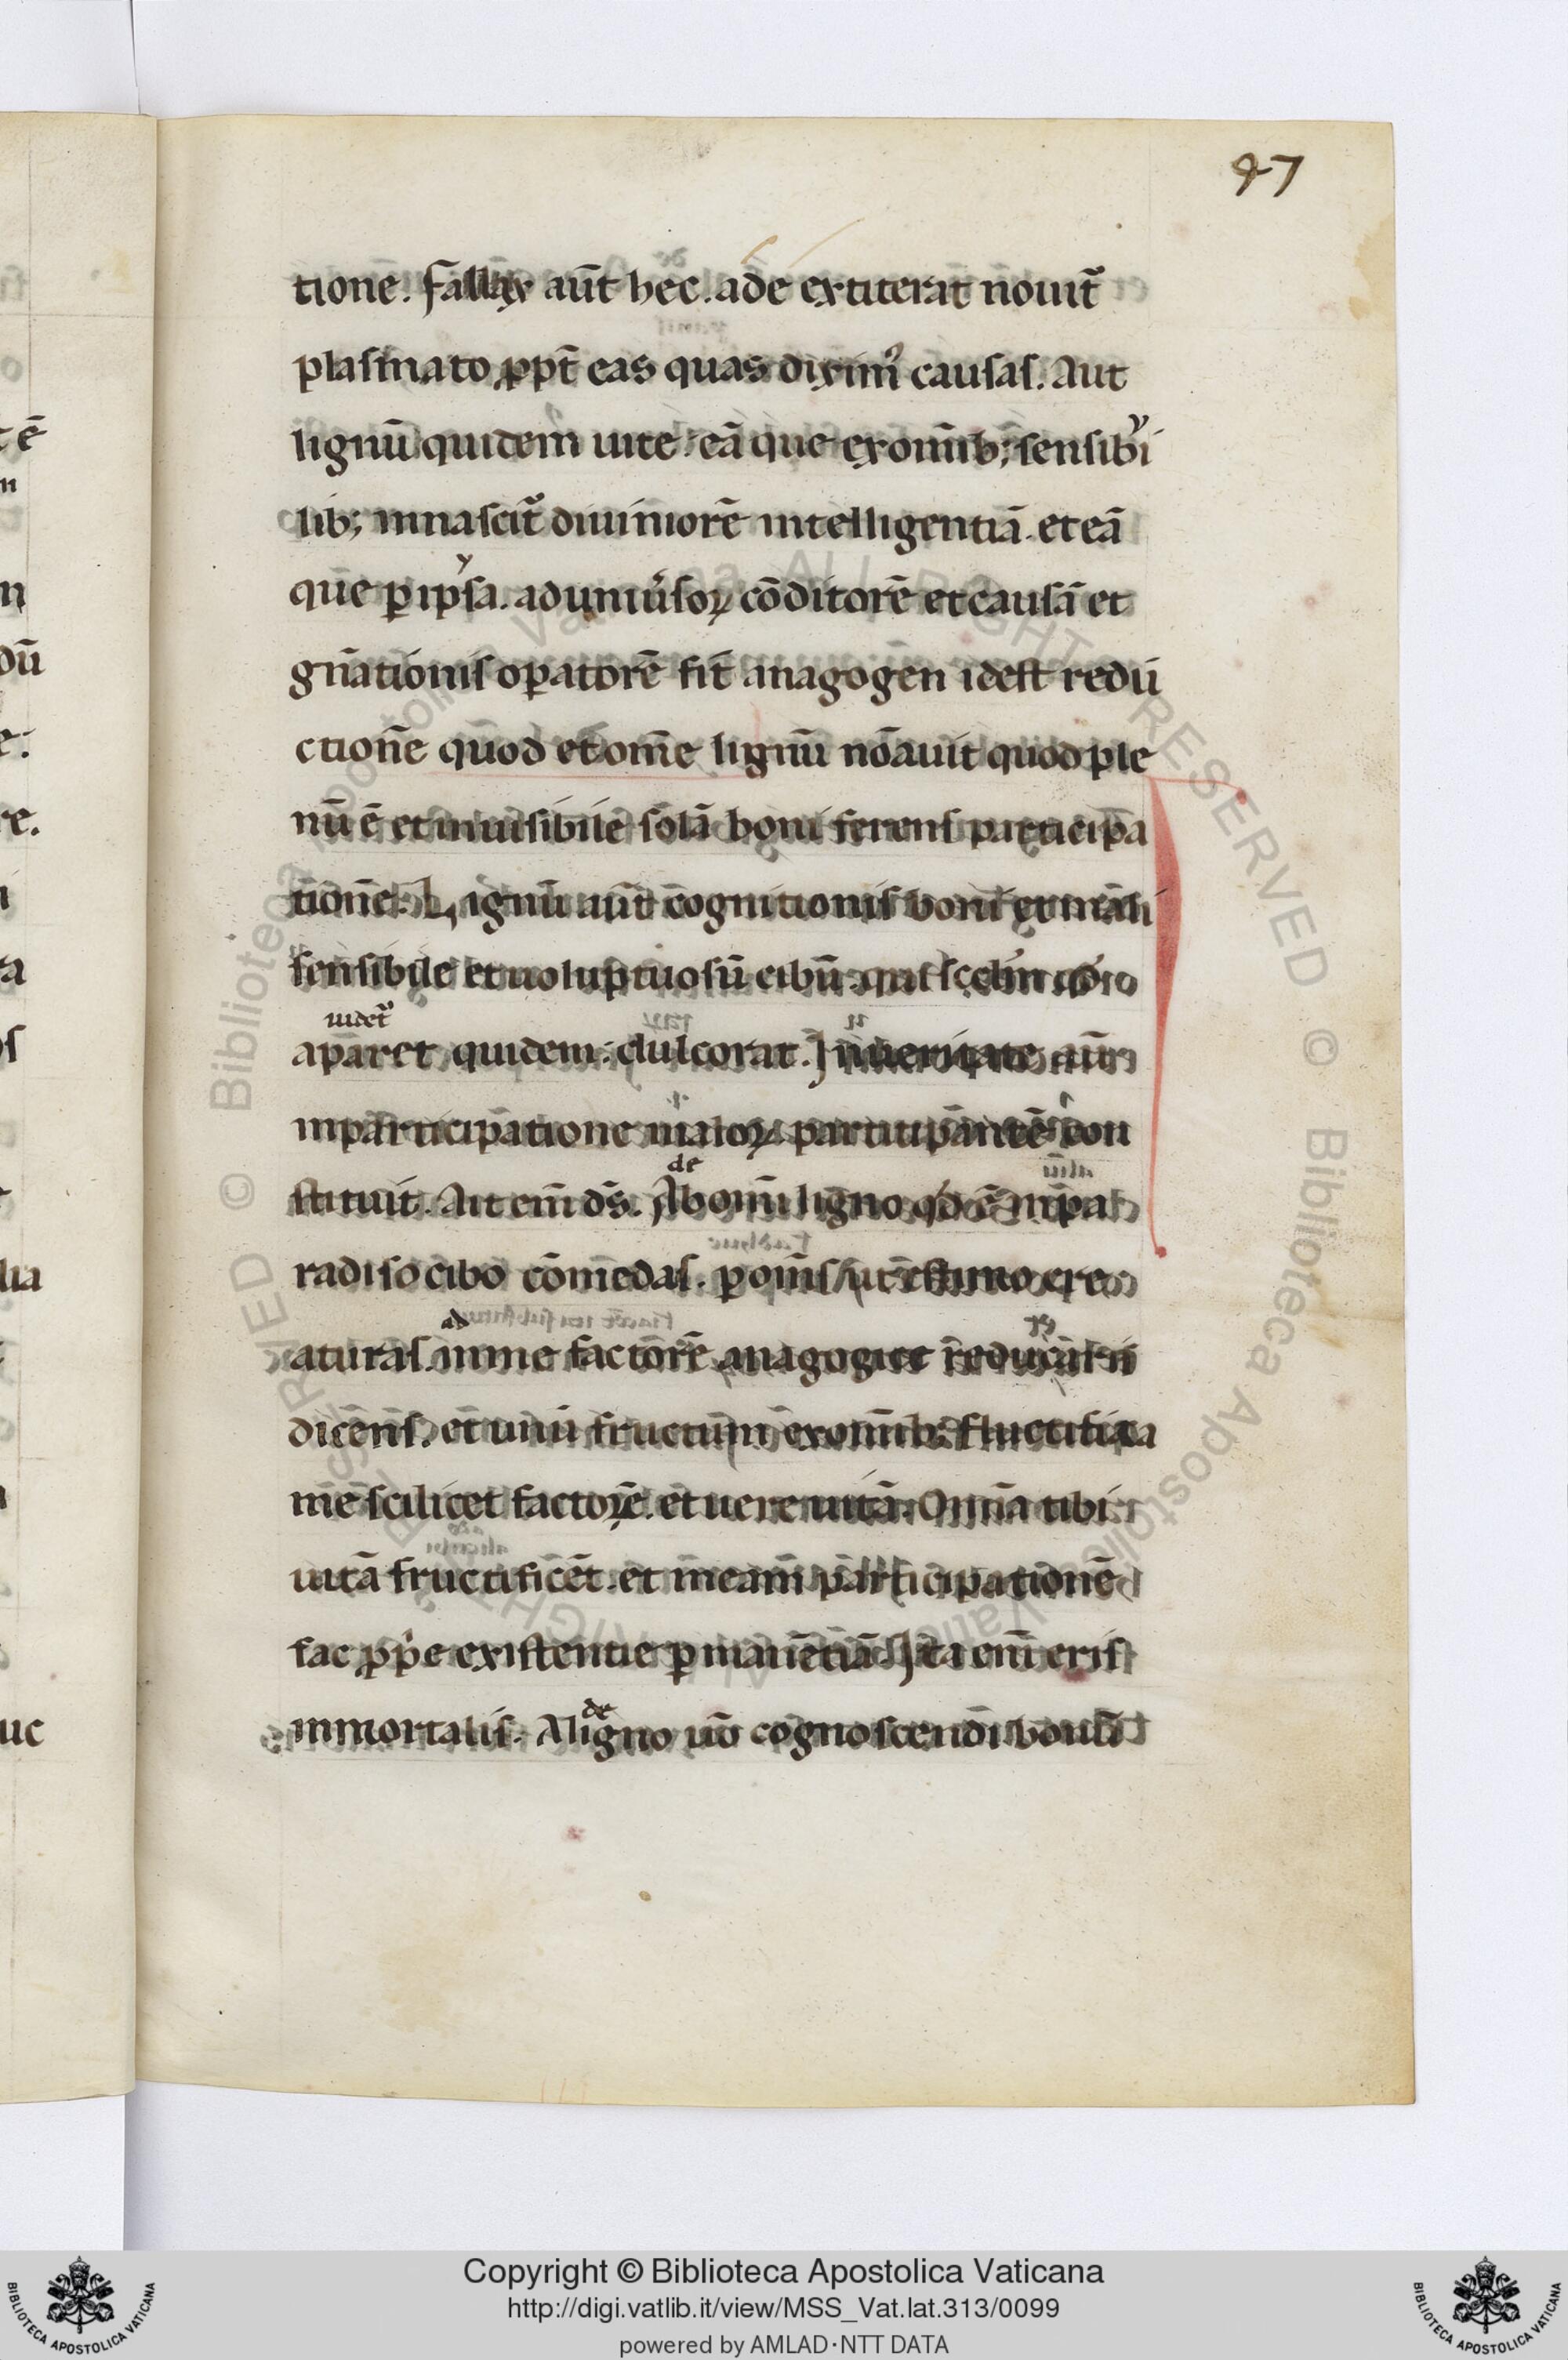 97
tione. fallax aut̄ hec. ade extiterat nouit᷑
plasmato ꝓpt̄ eas quas diximꝰ causas. Aut
lignū quidem uite. eā que exom̄ib; sensibi
lib; innascit᷑ diuiniorē intelligentiā. et eā
que ꝑ ip̄sa. ad uniu̓soꝝ cōditorē et causā et
gn̄ationis oꝑatorē fit anagogen idest redu
ctionē quod et om̄e lignū nōauit quod ple
nū ē et inuisibile solā boni ferens participa
tionē. Lignū aut̄ cognitionis boni et mali
sensibile et uoluptuosū cibū. qui
uidet᷑
aparet quidem. dulcorat. In ueritate aut̄
in participatione maloꝝ participantē con
de
stituit. Ait eni᷑ ds̄. Ab omni ligno qd̓ ē in pa
radiso cibo cōmedas. ꝑ om̄s ut estimo cre
ad
aturas. in me factorē anagogice
dicens. et unū fructum exom̄ib; fructifica
me scilicet factorē. et uere uitā. Omīa tibi
uitā fructificēt. et meam participationē
fac ꝓp̓e existentie ꝑmanētiā. Ita eni᷑ eris
de
inmortalis. A ligno uō cognoscendi bonū
Copyright © Biblioteca Apostolica Vaticana
http://digi.vatlib.it/view/MSS_Vat.lat.313/0099
powered by AMLAD·NTT DATA
BIBLIOTECA APOSTOLICA VATICANA
BIBLIOTECA APOSTOLICA VATICANA